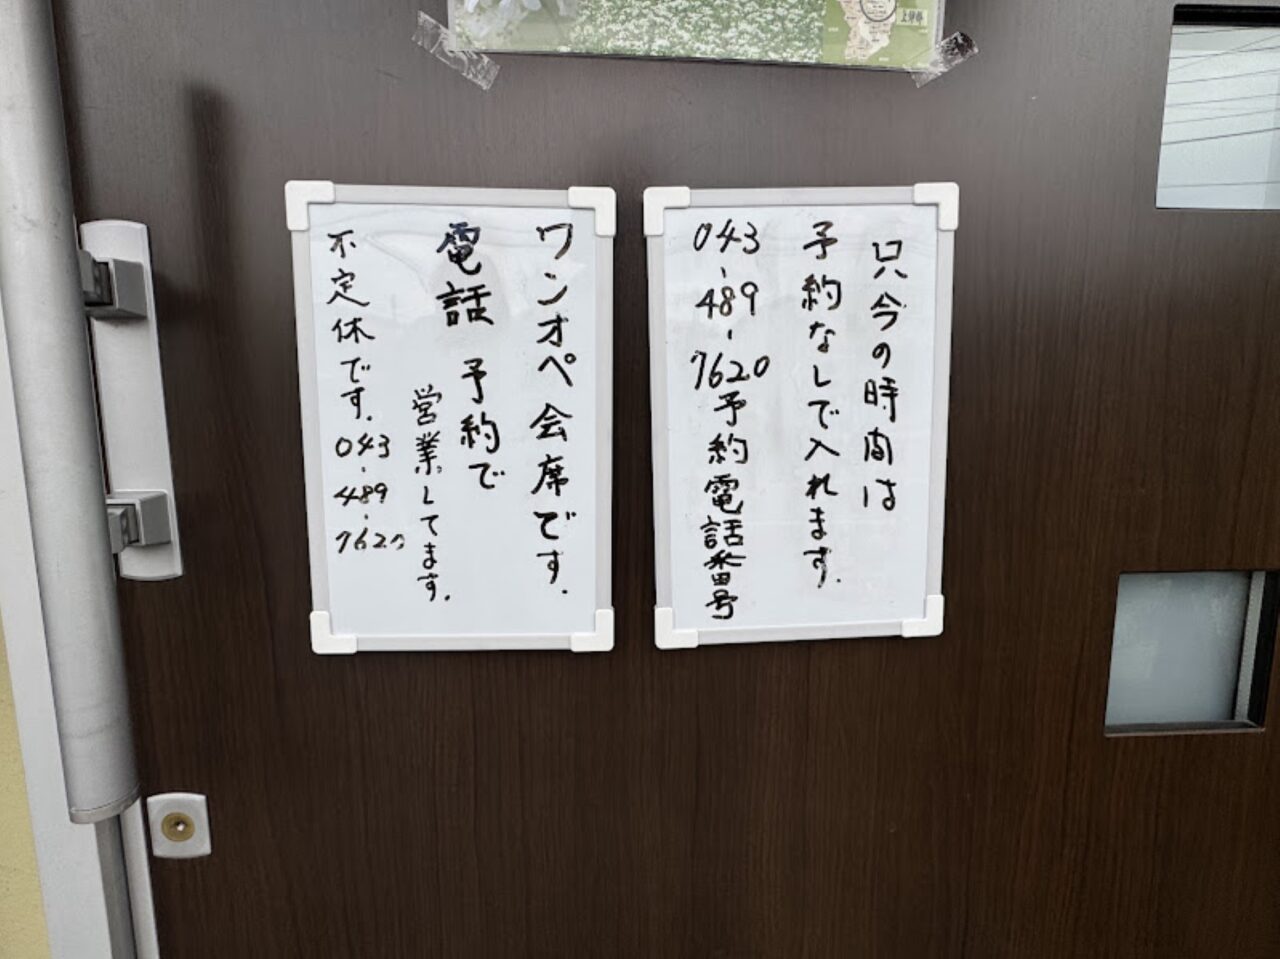 上伊那
只今の時間は
予約なしで入れます.
043-489-7620予約電話番号
ワンオペ会席です.
電話予約で
営業してます.
不定休です.043-489-7620